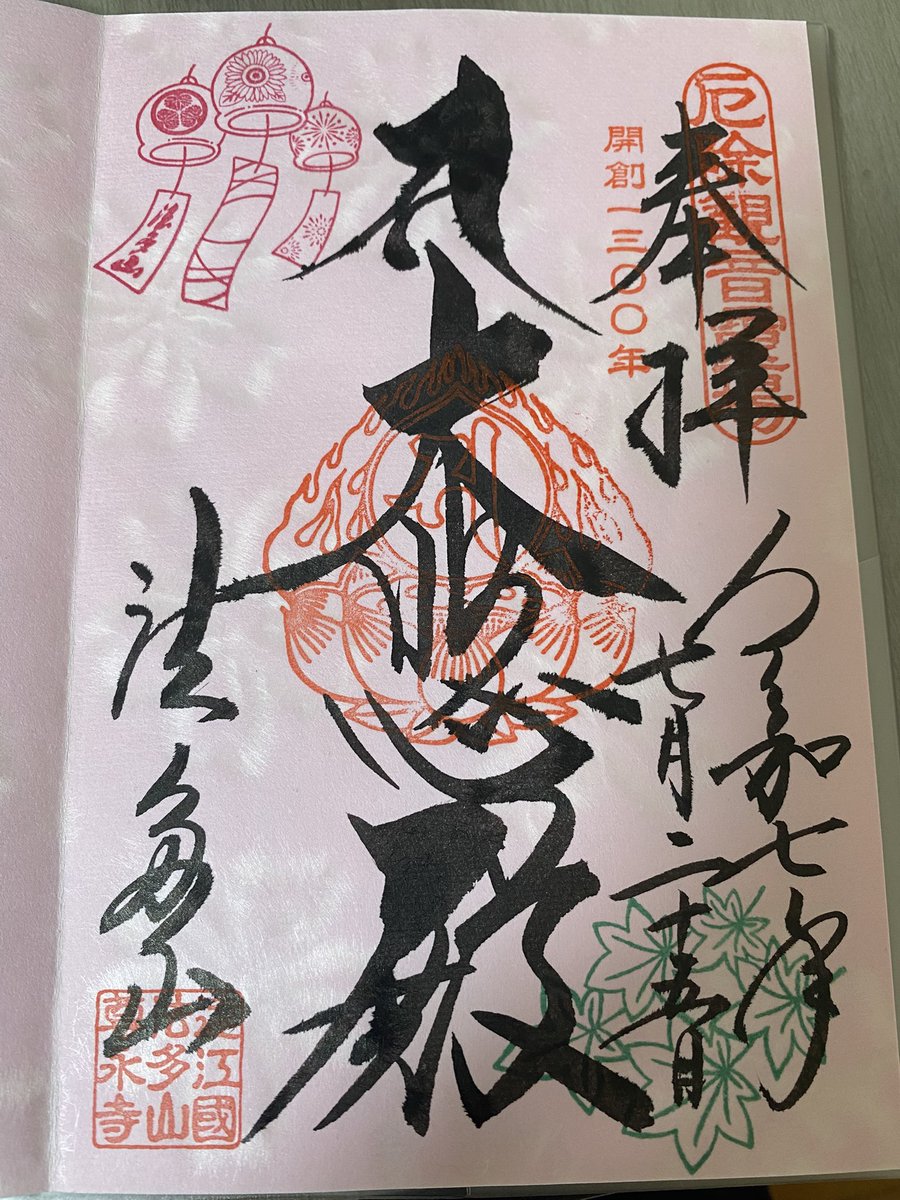 奉拝
厄除觀音靈場
開創一三〇〇年
令和七年
七月二十五日
大悲殿
法多山
法多山
遠江國
法多山
尊永寺